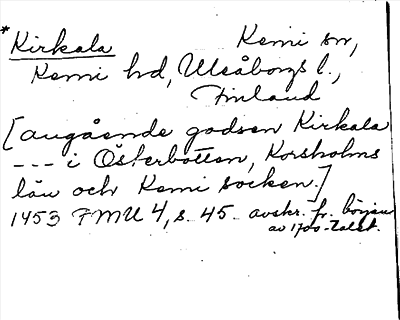 * Kirkala Kemi sn,
Kemi hd, Uleåborgs l.,
Finland
[angående godsen Kirkala
--- i Österbotten, Korsholms
län och Kemi socken.]
1453 FMU 4, s. 45 - avskr. fr. början
av 1700-talet.